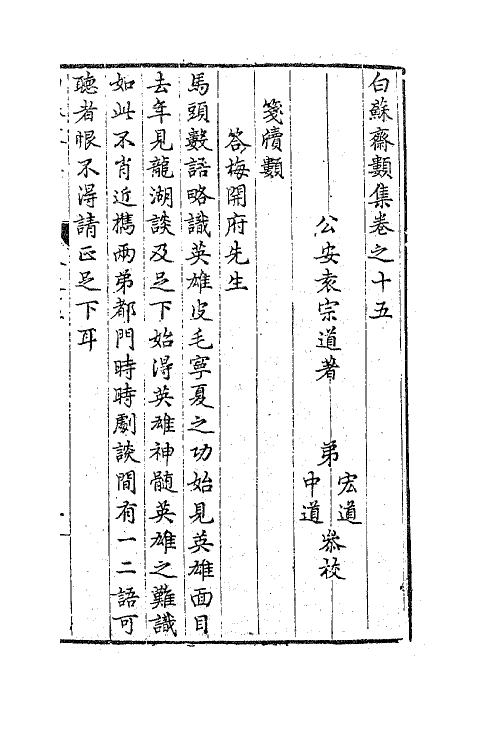 白蘇齋類集卷之十五
公安袁宗道著　弟宏道中道叅校
箋牘類
答梅開府先生
馬頭數語略識英雄皮毛寧夏之功始見英雄面目
去年見龍湖談及足下始淂英雄神髓英雄之難識
如此不肖近檇兩弟都門時時劇談間有一二語可
聽者恨不淂請正足下耳